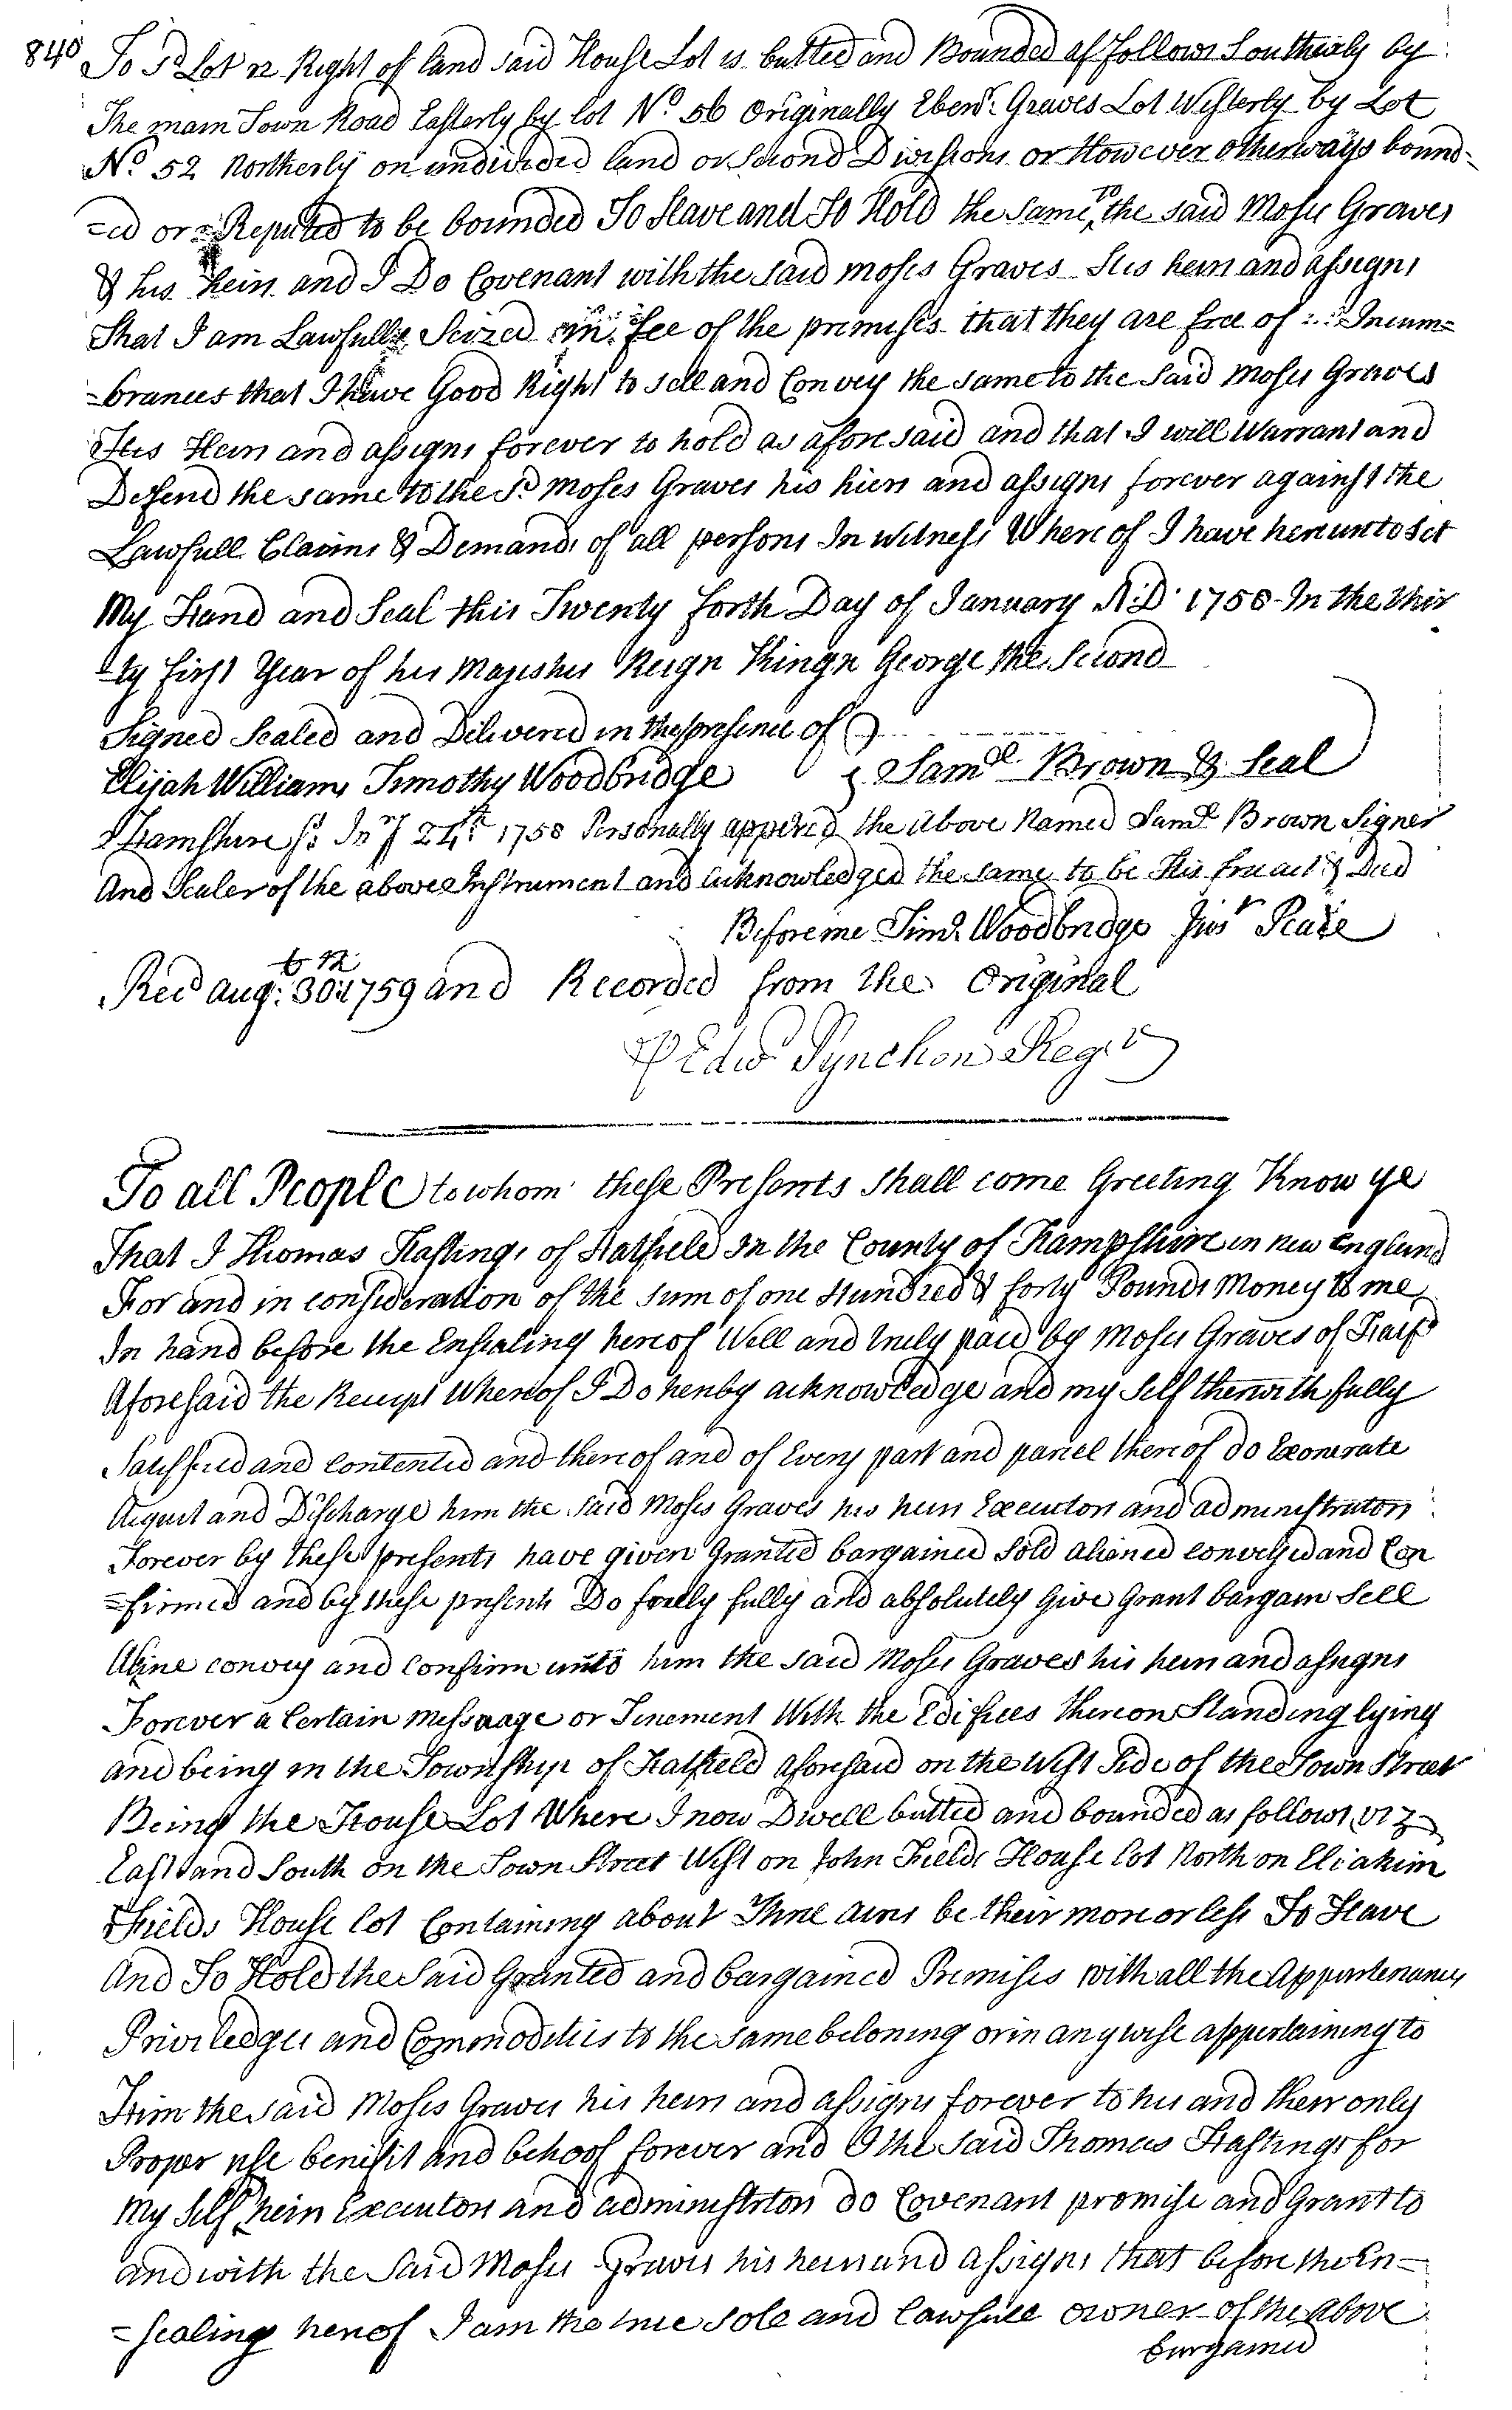 840
To sd Lot or Right of land said House Lot is butted and Bounded as follows Southerly by
The main Town Road Easterly by lot No. 56 Originally Ebenr. Graves Lot Westerly by Lot
No. 52 Northerly on undivided land or Second Divisions or However otherways bound-
=ed or Reputed to be bounded To Have and To Hold the same to the said Moses Graves
& his heirs and I Do Covenant with the said Moses Graves His heirs and assigns
That I am Lawfully Seized in fee of the premises that they are free of Incum=
-brances that I have Good Right to sell and Convey the same to the said Moses Graves
His Heirs and assigns forever to hold as afore said and that I will Warrant and
Defend the same to the sd Moses Graves his hiers and assigns forever against the
Lawfull Claims & Demands of all persons In witness Where of I have hereunto set
My Hand and Seal this Twenty forth Day of January A:D: 1758 In the thir
-ty first Year of his Majesties Reign Kingn George the Second
Signed Sealed and Delivered in the presence of
Elijah Williams Timothy Woodbridge Saml Brown & Seal
Hamshire ss Jnry 24th 1758 Personally appered the above Named Saml Brown Signer
And Sealer of the above Instrument and acknowledged the same to be His free act & Deed
Before me Timo. Woodbridge Jusr Peace
Recd Aug: 30th: 1759 and Recorded from the Original
P Edwd Pynchon Regr
To all People to whom these Presents shall come Greeting Know ye
That I Thomas Hastings of Hatfield In the County of Hampshire in new England
For and in consideration of the sum of one Hundred & forty Pounds Money to me
In hand before the Ensealing hereof Well and truly paid by Moses Graves of Hatfd
Aforesaid the Receipt Whereof I Do hereby acknowledge and my self therewith fully
Satisfied and contented and thereof and of Every part and parcel thereof do Exonerate
Acquit and Discharge him the said Moses Graves his heirs Executors and administrators
Forever by these presents have given Granted bargained Sold aliened conveyed and Con
=firmed and by these presents Do freely fully and absolutely Give Grant bargain Sell
Aline convey and confirm unto him the said Moses Graves his heirs and assigns
Forever a Certain messuage or Tenement With the Edifices thereon Standing lying
and being in the Township of Hatfield aforesaid on the West Side of the Town Street
Being the House Lot Where I now Dwell butted and bounded as follows viz
East and South on the Town Street West on John Fields House lot North on Eliakim
Fields House lot Containing about Three acres be their more or less To Have
And To Hold the said Granted and bargained Premises with all the Appurtenances
Priviledges and Commodities to the same beloning or in any wise appertaining to
Him the said Moses Graves his heirs and assigns forever to his and their only
Proper use benifit and behoof forever and I the said Thomas Hastings for
My self heirs Executors and administrtors do Covenant promise and Grant to
and with the said Moses Graves his heirs and assigns that before the En=
=sealing hereof I am the true sole and lawfull owner of the above
bargained